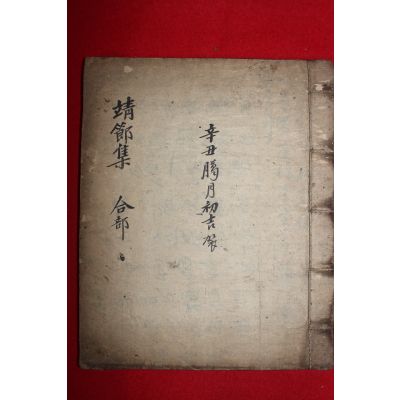 辛丑臈月初吉
靖節集 合部